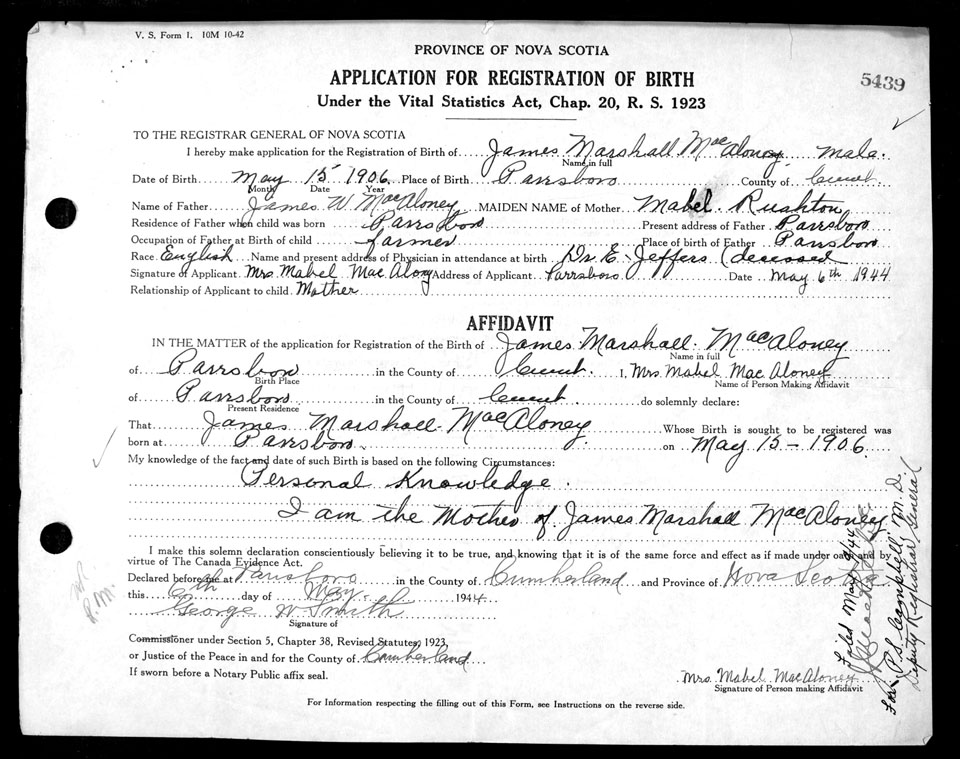 V. S. Form 1. 10M 10-42
PROVINCE OF NOVA SCOTIA
APPLICATION FOR REGISTRATION OF BIRTH
5439
Under the Vital Statistics Act, Chap. 20, R. S. 1923
TO THE REGISTRAR GENERAL OF NOVA SCOTIA
I hereby make application for the Registration of Birth of James Marshall MacAloney Male.
Name in full
Date of Birth May 15 1906 Place of Birth Parrsboro County of Cumb.
Month Date Year
Name of Father James W. MacAloney MAIDEN NAME of Mother Mabel Rushton
Residence of Father when child was born Parrsboro Present address of Father Parrsboro
Occupation of Father at Birth of child farmer Place of birth of Father Parrsboro
Race English Name and present address of Physician in attendance at birth Dr. E. Jeffers (deceased
Signature of Applicant Mrs. Mabel MacAloney Address of Applicant Parrsboro Date May 6th 1944
Relationship of Applicant to child Mother
AFFIDAVIT
IN THE MATTER of the application for Registration of the Birth of James Marshall MacAloney
Name in full
of Parrsboro in the County of Cumb. I, Mrs. Mabel MacAloney
Birth Place Name of Person Making Affidavit
of Parrsboro in the County of Cumb. do solemnly declare:
Present Residence
That James Marshall MacAloney Whose Birth is sought to be registered was
born at Parrsboro on May 15 - 1906
My knowledge of the fact and date of such Birth is based on the following Circumstances:
Personal Knowledge.
I am the Mother of James Marshall MacAloney
I make this solemn declaration conscientiously believing it to be true, and knowing that it is of the same force and effect as if made under oath and by
virtue of The Canada Evidence Act.
Declared before me at Parrsboro in the County of Cumberland and Province of Nova Scotia
this 6th day of May 1944
George W Smith
Signature of
Commissioner under Section 5, Chapter 38, Revised Statutes, 1923,
or Justice of the Peace in and for the County of Cumberland
If sworn before a Notary Public affix seal.
Mrs. Mabel MacAloney
Signature of Person making Affidavit
For Information respecting the filling out of this Form, see Instructions on the reverse side.
P.M.
Filed May 9/44
For: P.S. Campbell, M.D.
Deputy Registrar General